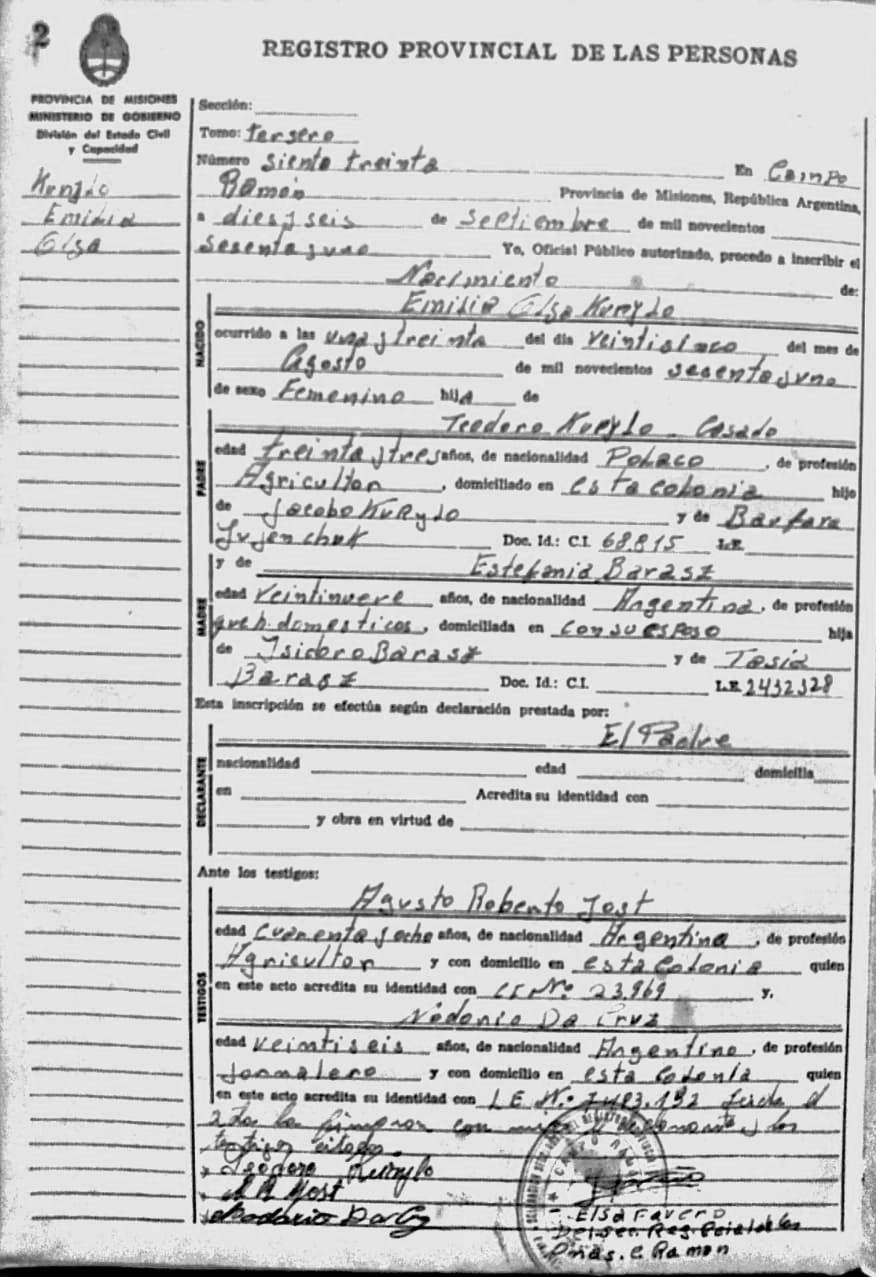 2
REGISTRO PROVINCIAL DE LAS PERSONAS
PROVINCIA DE MISIONES
MINISTERIO DE GOBIERNO
División del Estado Civil
y Capacidad
Kurylo
Emilia
Olga
Sección:
Tomo: tersero
Número siento treinta En Campo
Ramón Provincia de Misiones, República Argentina,
a diesyseis de septiembre de mil novecientos
sesentayuno Yo, Oficial Público autorizado, procedo a inscribir el
Nacimiento de:
NACIDO
Emilia Olga Kurylo
ocurrido a las una y treinta del dia veintisinco del mes de
Agosto de mil novecientos sesentayuno
de sexo Femenino hija de
PADRE
Teodoro Kurylo - Casado
edad treinta y tres años, de nacionalidad Polaco, de profesión
Agricultor, domiciliado en esta colonia hijo
de Jacobo Kurylo y de Barbara
Doc. Id.: C.I. 68.815 L.E.
y de Estefania Barasz
MADRE
edad veintinueve años, de nacionalidad Argentina, de profesión
queh. domesticos, domiciliada en con su esposo hija
de Isidoro Barasz y de Tasia
Barasz Doc. Id.: C.I. L.E. 2432328
Esta inscripción se efectúa según declaración prestada por:
El Padre
DECLARANTE
nacionalidad edad domicilia
en Acredita su identidad con
y obra en virtud de
Ante los testigos:
TESTIGOS
Agusto Roberto Jost
edad cuarenta y ocho años, de nacionalidad Argentina, de profesión
Agricultor y con domicilio en esta Colonia quien
en este acto acredita su identidad con CI Nº 23.969 y,
Da Cruz
edad veintiseis años, de nacionalidad Argentino, de profesión
Jornalero y con domicilio en esta Colonia quien
en este acto acredita su identidad con L E Nº 7.483.192 Leida el
Acta la firman con el declarante y los
testigos citados.
Teodoro Kurylo
A R Jost
Elsa Favero
C. Ramon